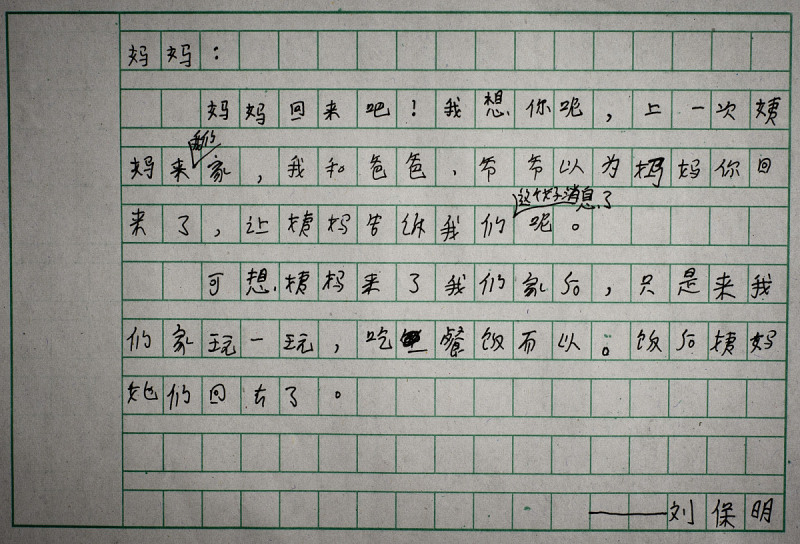 妈妈：
妈妈回来吧！我想你呢，上一次姨
妈来我们家，我和爸爸、爷爷以为妈妈你回
来了，让姨妈告诉我们这个好消息了呢。
可想，姨妈来了我们家后，只是来我
们家玩一玩，吃餐饭而以。饭后姨妈
她们回去了。
——刘保明